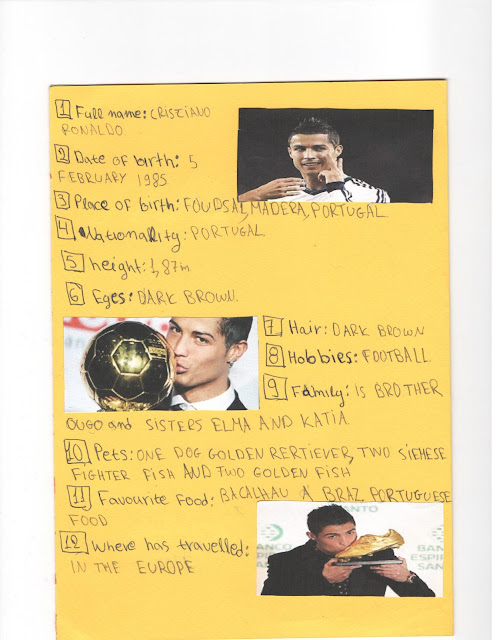 1 Full name: CRISTIANO
RONALDO
2 Date of birth: 5
FEBRUARY 1985
3 Place of birth: FOUDSAL, MADERA, PORTUGAL
4 Nationality: PORTUGAL
5 height: 1,87m
6 Eyes: DARK BROWN.
7 Hair: DARK BROWN
8 Hobbies: FOOTBALL.
9 Family: IS BROTHER
OUGO and SISTERS ELMA AND KATIA.
10 Pets: ONE DOG GOLDEN RERTIEVER, TWO SIEMESE
FIGHTER FISH AND TWO GOLDEN FISH
11 Favourite food: BACALHAU À BRAZ, PORTUGUESE
FOOD
12 Where has travelled:
IN THE EUROPE
ANTO
BANCO
ESPIR
BAN
ESPI
SAN